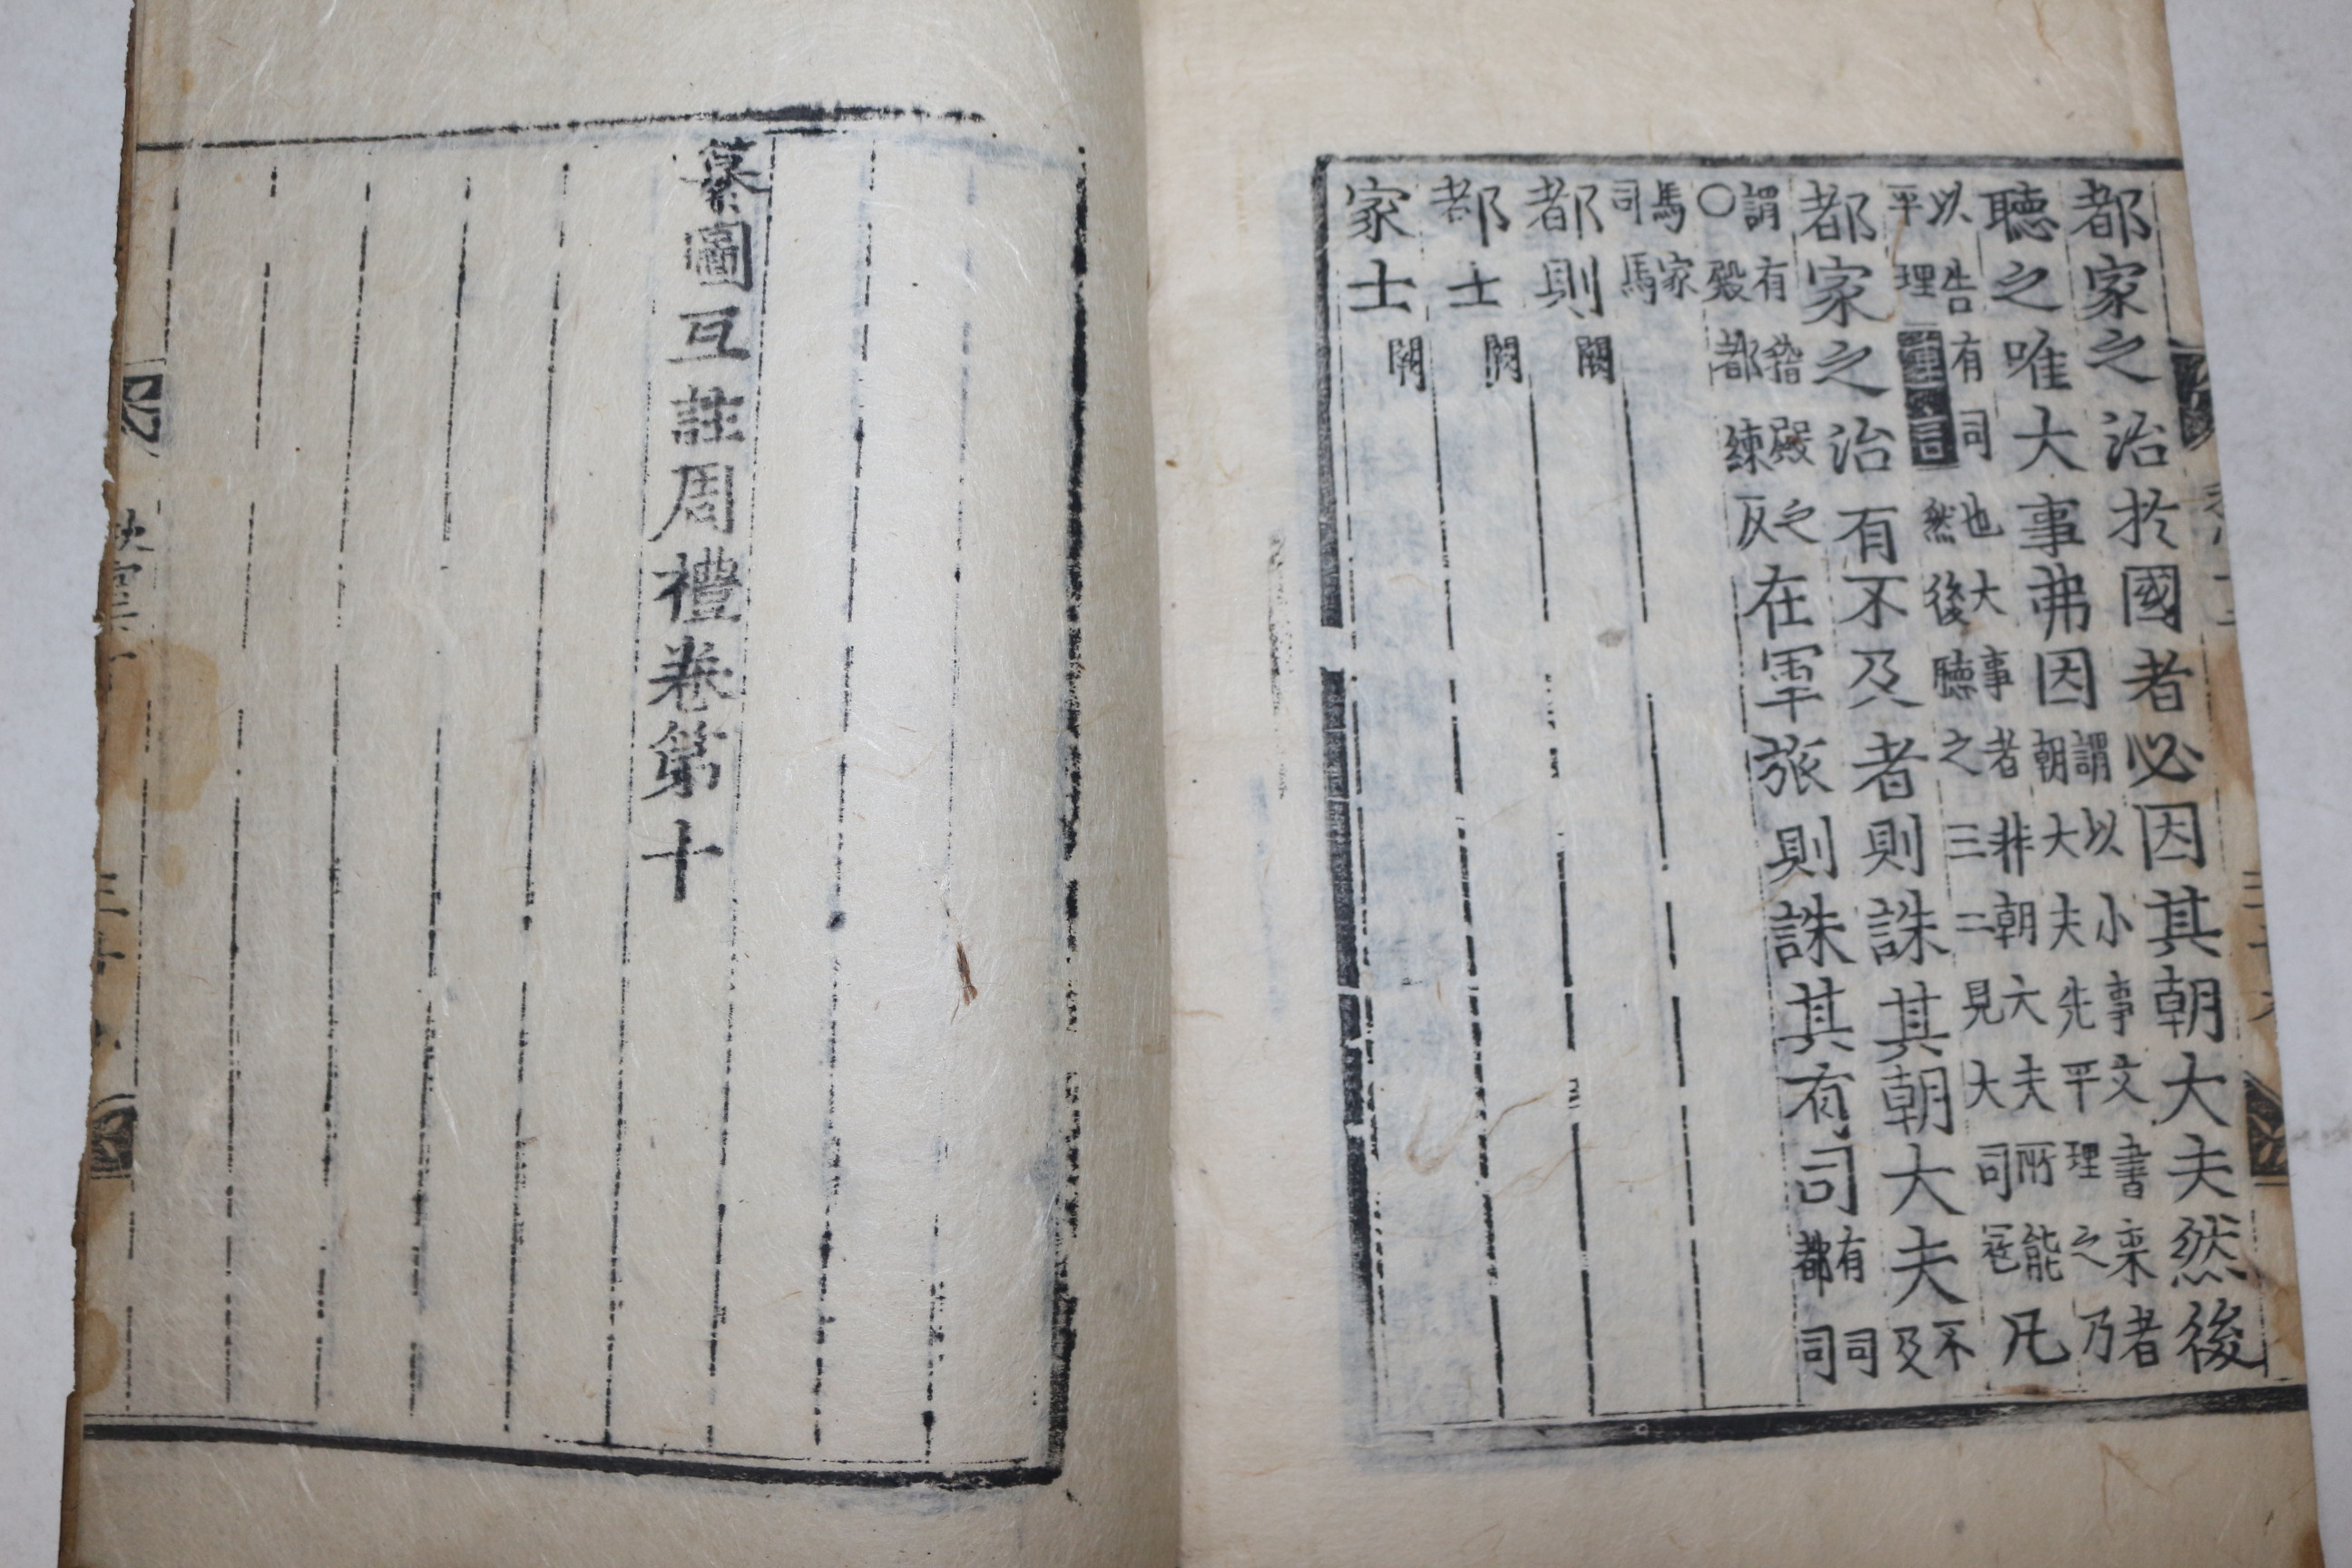 都家之治於國者必因其朝大夫然後
聽之唯大事弗因謂以小事文書來者朝大夫先平理之乃
以告有司也大事者非朝大夫所能平理重言然後聽之三二見大司寇凡
都家之治有不及者則誅其朝大夫不及
謂有稽殿之○殿都練反在軍旅則誅其有司有司都司
馬家司馬
都則闕
都士闕
家士闕
纂圖互註周禮卷第十